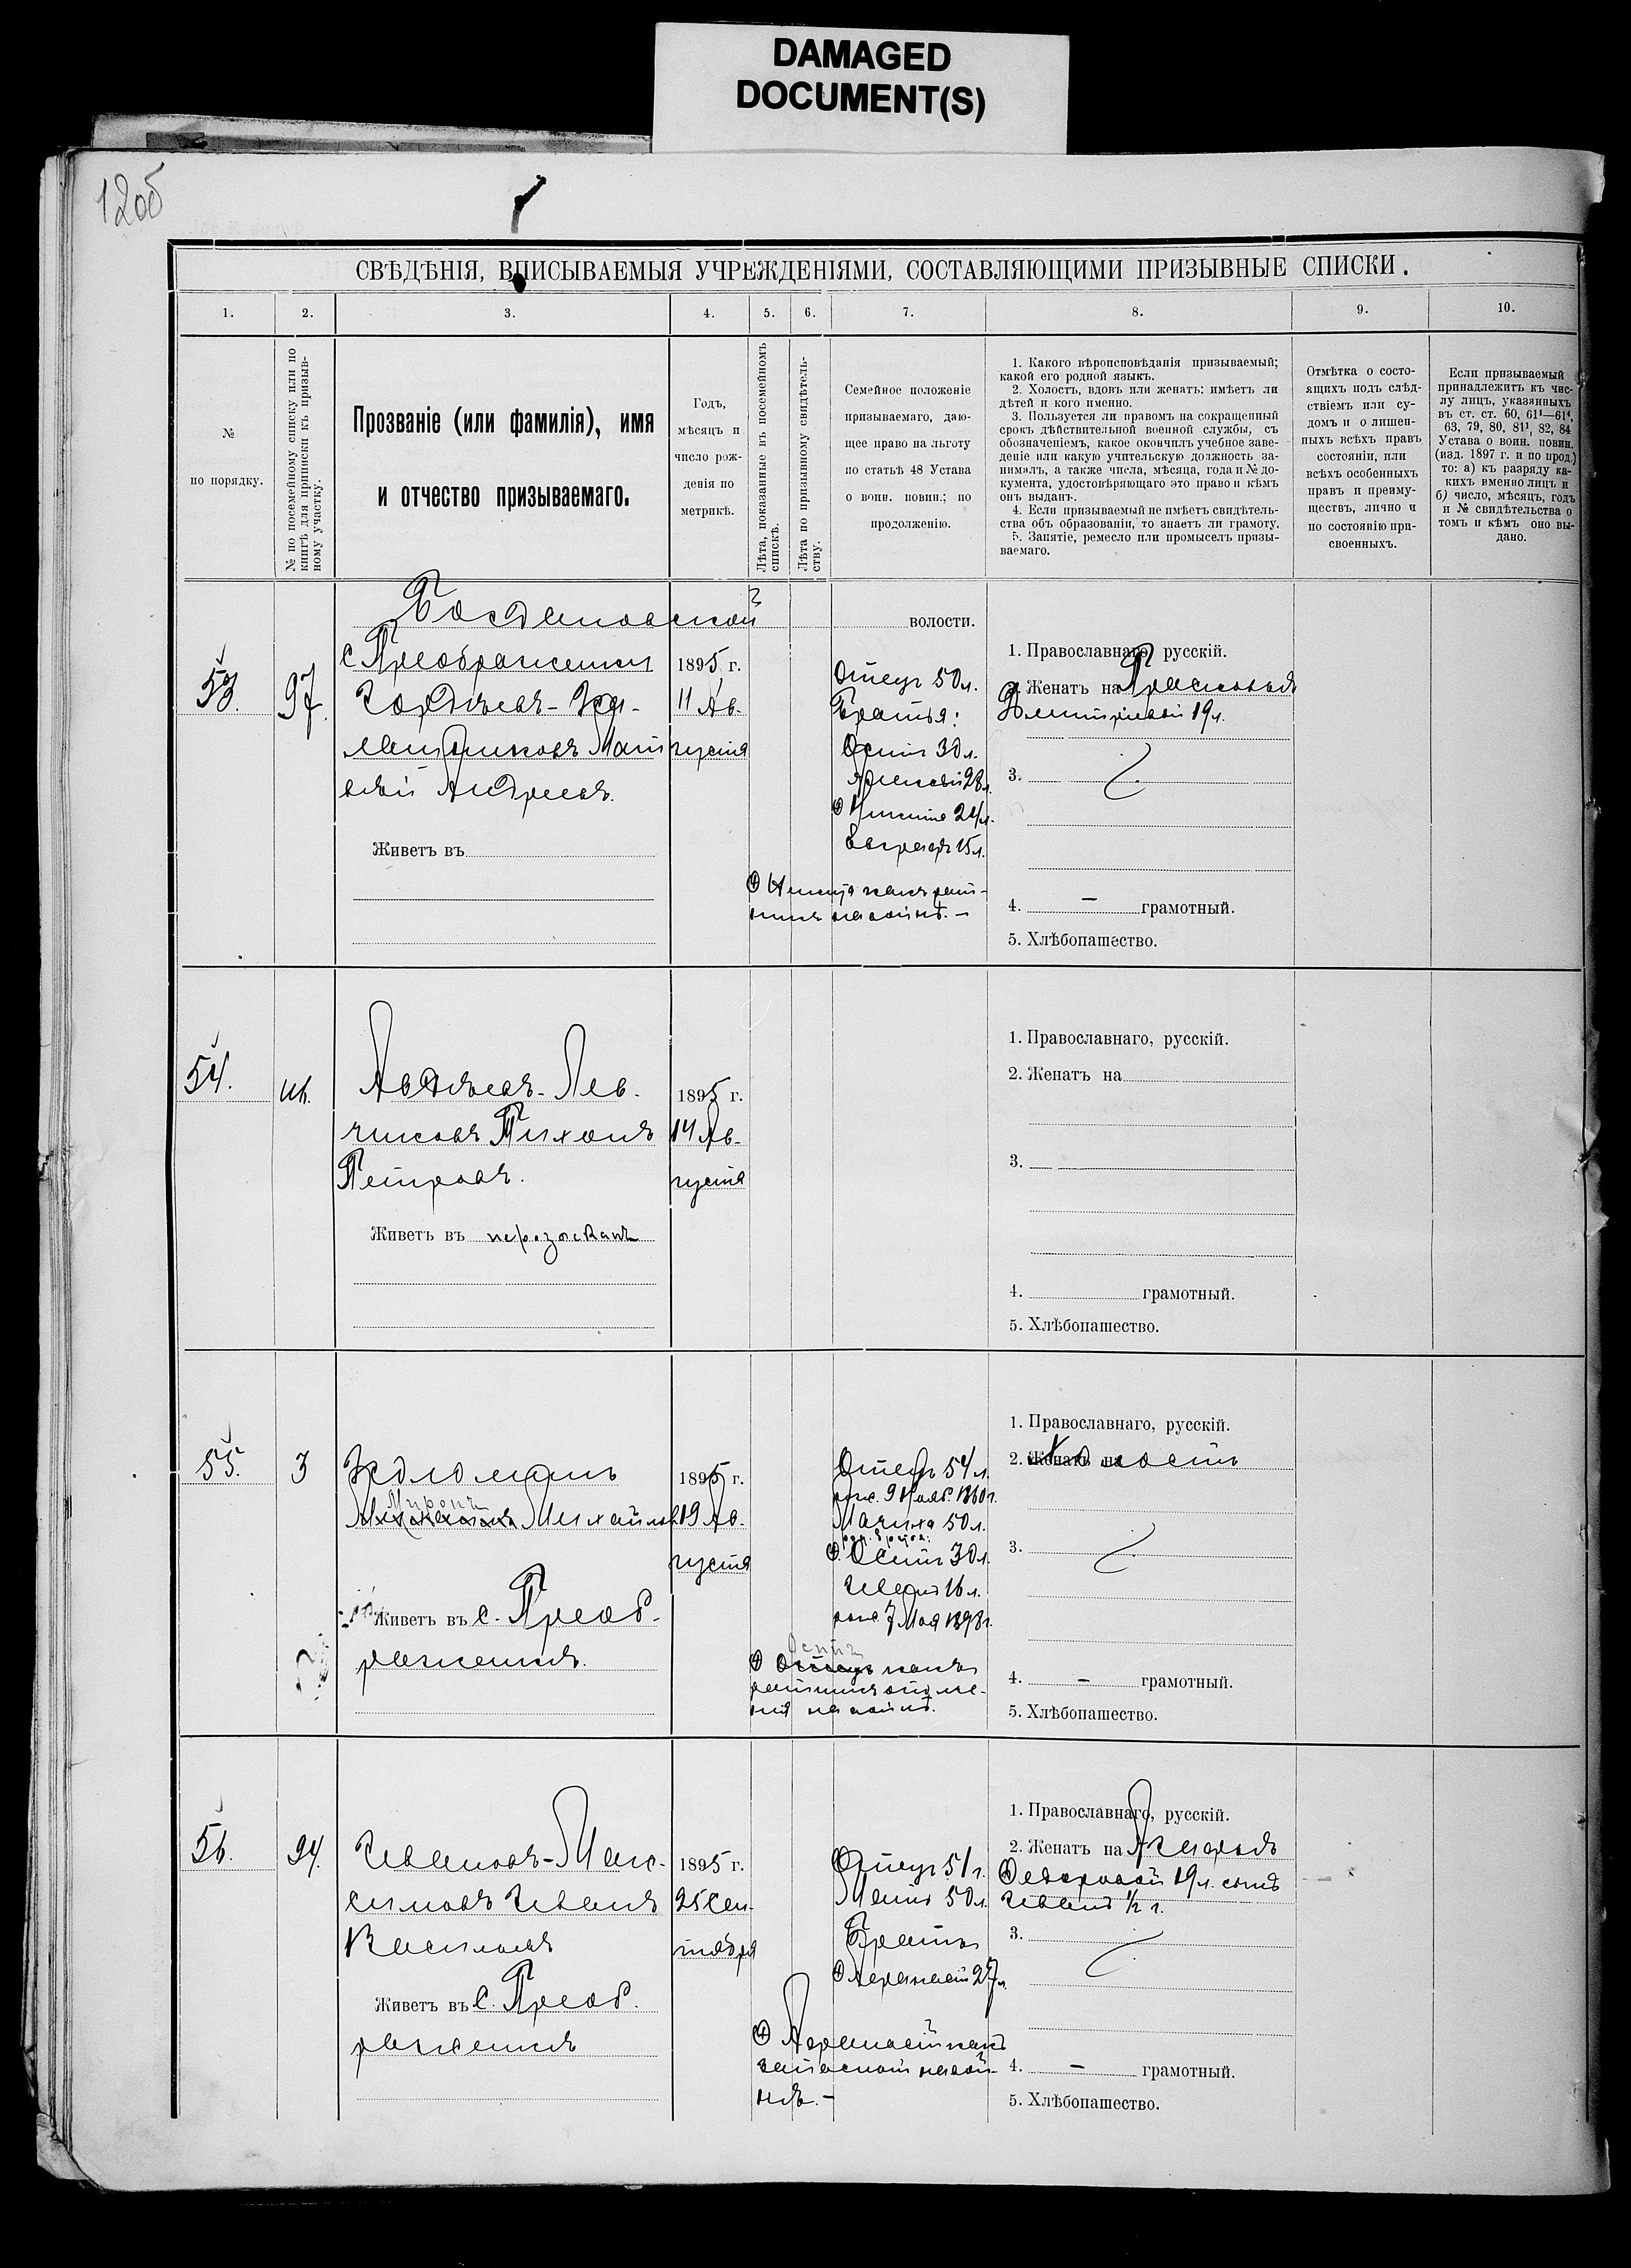 DAMAGED
DOCUMENT(S)
120б
СВѢДѢНІЯ, ВПИСЫВАЕМЫЯ УЧРЕЖДЕНІЯМИ, СОСТАВЛЯЮЩИМИ ПРИЗЫВНЫЕ СПИСКИ.
1. 2. 3. 4. 5. 6. 7. 8. 9. 10.
№
по порядку.
№ по посемейному списку или по
книгѣ для приписки къ призыв-
ному участку.
Прозваніе (или фамилія), имя
и отчество призываемаго.
Годъ,
мѣсяцъ и
число рож-
денія по
метрикѣ.
Лѣта, показанные въ посемейномъ
спискѣ.
Лѣта по призывному свидѣтель-
ству.
Семейное положеніе
призываемаго, даю-
щее право на льготу
по статьѣ 48 Устава
о воин. повин.; по
продолженію.
1. Какого вѣроисповѣданія призываемый;
какой его родной языкъ.
2. Холостъ, вдовъ или женатъ; имѣетъ ли
дѣтей и кого именно.
3. Пользуется ли правомъ на сокращенный
срокъ дѣйствительной военной службы, съ
обозначеніемъ, какое окончилъ учебное заве-
деніе или какую учительскую должность за-
нималъ, а также числа, мѣсяца, года и № до-
кумента, удостовѣряющаго это право и кѣмъ
онъ выданъ.
4. Если призываемый не имѣетъ свидѣтель-
ства объ образованіи, то знаетъ ли грамоту.
5. Занятіе, ремесло или промыселъ призы-
ваемаго.
Отмѣтка о состо-
ящихъ подъ слѣд-
ствіемъ или су-
домъ и о лишен-
ныхъ всѣхъ правъ
состоянія, или
всѣхъ особенныхъ
правъ и преиму-
ществъ, лично и
по состоянію при-
своенныхъ.
Если призываемый
принадлежитъ къ чис-
лу лицъ, указанныхъ
въ ст. ст. 60, 61¹—61⁴,
63, 79, 80, 81¹, 82, 84
Устава о воин. повин.
(изд. 1897 г. и по прод.)
то: а) къ разряду ка-
кихъ именно лицъ и
б) число, мѣсяцъ, годъ
и № свидѣтельства о
томъ и кѣмъ оно вы-
дано.
Богдановской волости.
53. 97.
с Преображенки
Матвѣй Андреевъ.
Живетъ въ
1895 г.
11 Ав-
густа
Отецъ 50 л.
Братья:
Осипъ 30 л.
Алексѣй 28 л.
Никита 24 л.
15 л.
1. Православнаго, русскій.
2. Женатъ на Прасковьѣ
Дмитріевой 19 л.
3.
4. — грамотный.
5. Хлѣбопашество.
54.
Авдѣевъ-Лев-
чиковъ Тихонъ
Петровъ.
Живетъ въ не розысканъ
1895 г.
14 Ав-
густа
1. Православнаго, русскій.
2. Женатъ на
3.
4. грамотный.
5. Хлѣбопашество.
55. 3
Миронъ
Михайловъ
Живетъ въ с. Преоб-
раженкѣ.
1895 г.
19 Ав-
густа
Отецъ 54 л.
рож. 9 Нояб. 1860 г.
Мачиха 50 л.
Осипъ 30 л.
Иванъ 16 л.
рож. 7 Мая 1898 г.
Осипъ
какъ
ратникъ ополче-
нія на войнѣ.
1. Православнаго, русскій.
2. Женатъ на Холостъ
3.
4. — грамотный.
5. Хлѣбопашество.
56. 94.
Ивановъ-Мак-
симовъ Иванъ
Васильевъ
Живетъ въ с. Преоб-
раженкѣ
1895 г.
25 Сен-
тября
Отецъ 51 г.
Мать 50 л.
Братъ
Афанасій 27 л.
Афанасій какъ
запасной на вой-
нѣ. —
1. Православнаго, русскій.
2. Женатъ на
Федоровой 19 л. сынъ
Иванъ ½ г.
3.
4. — грамотный.
5. Хлѣбопашество.